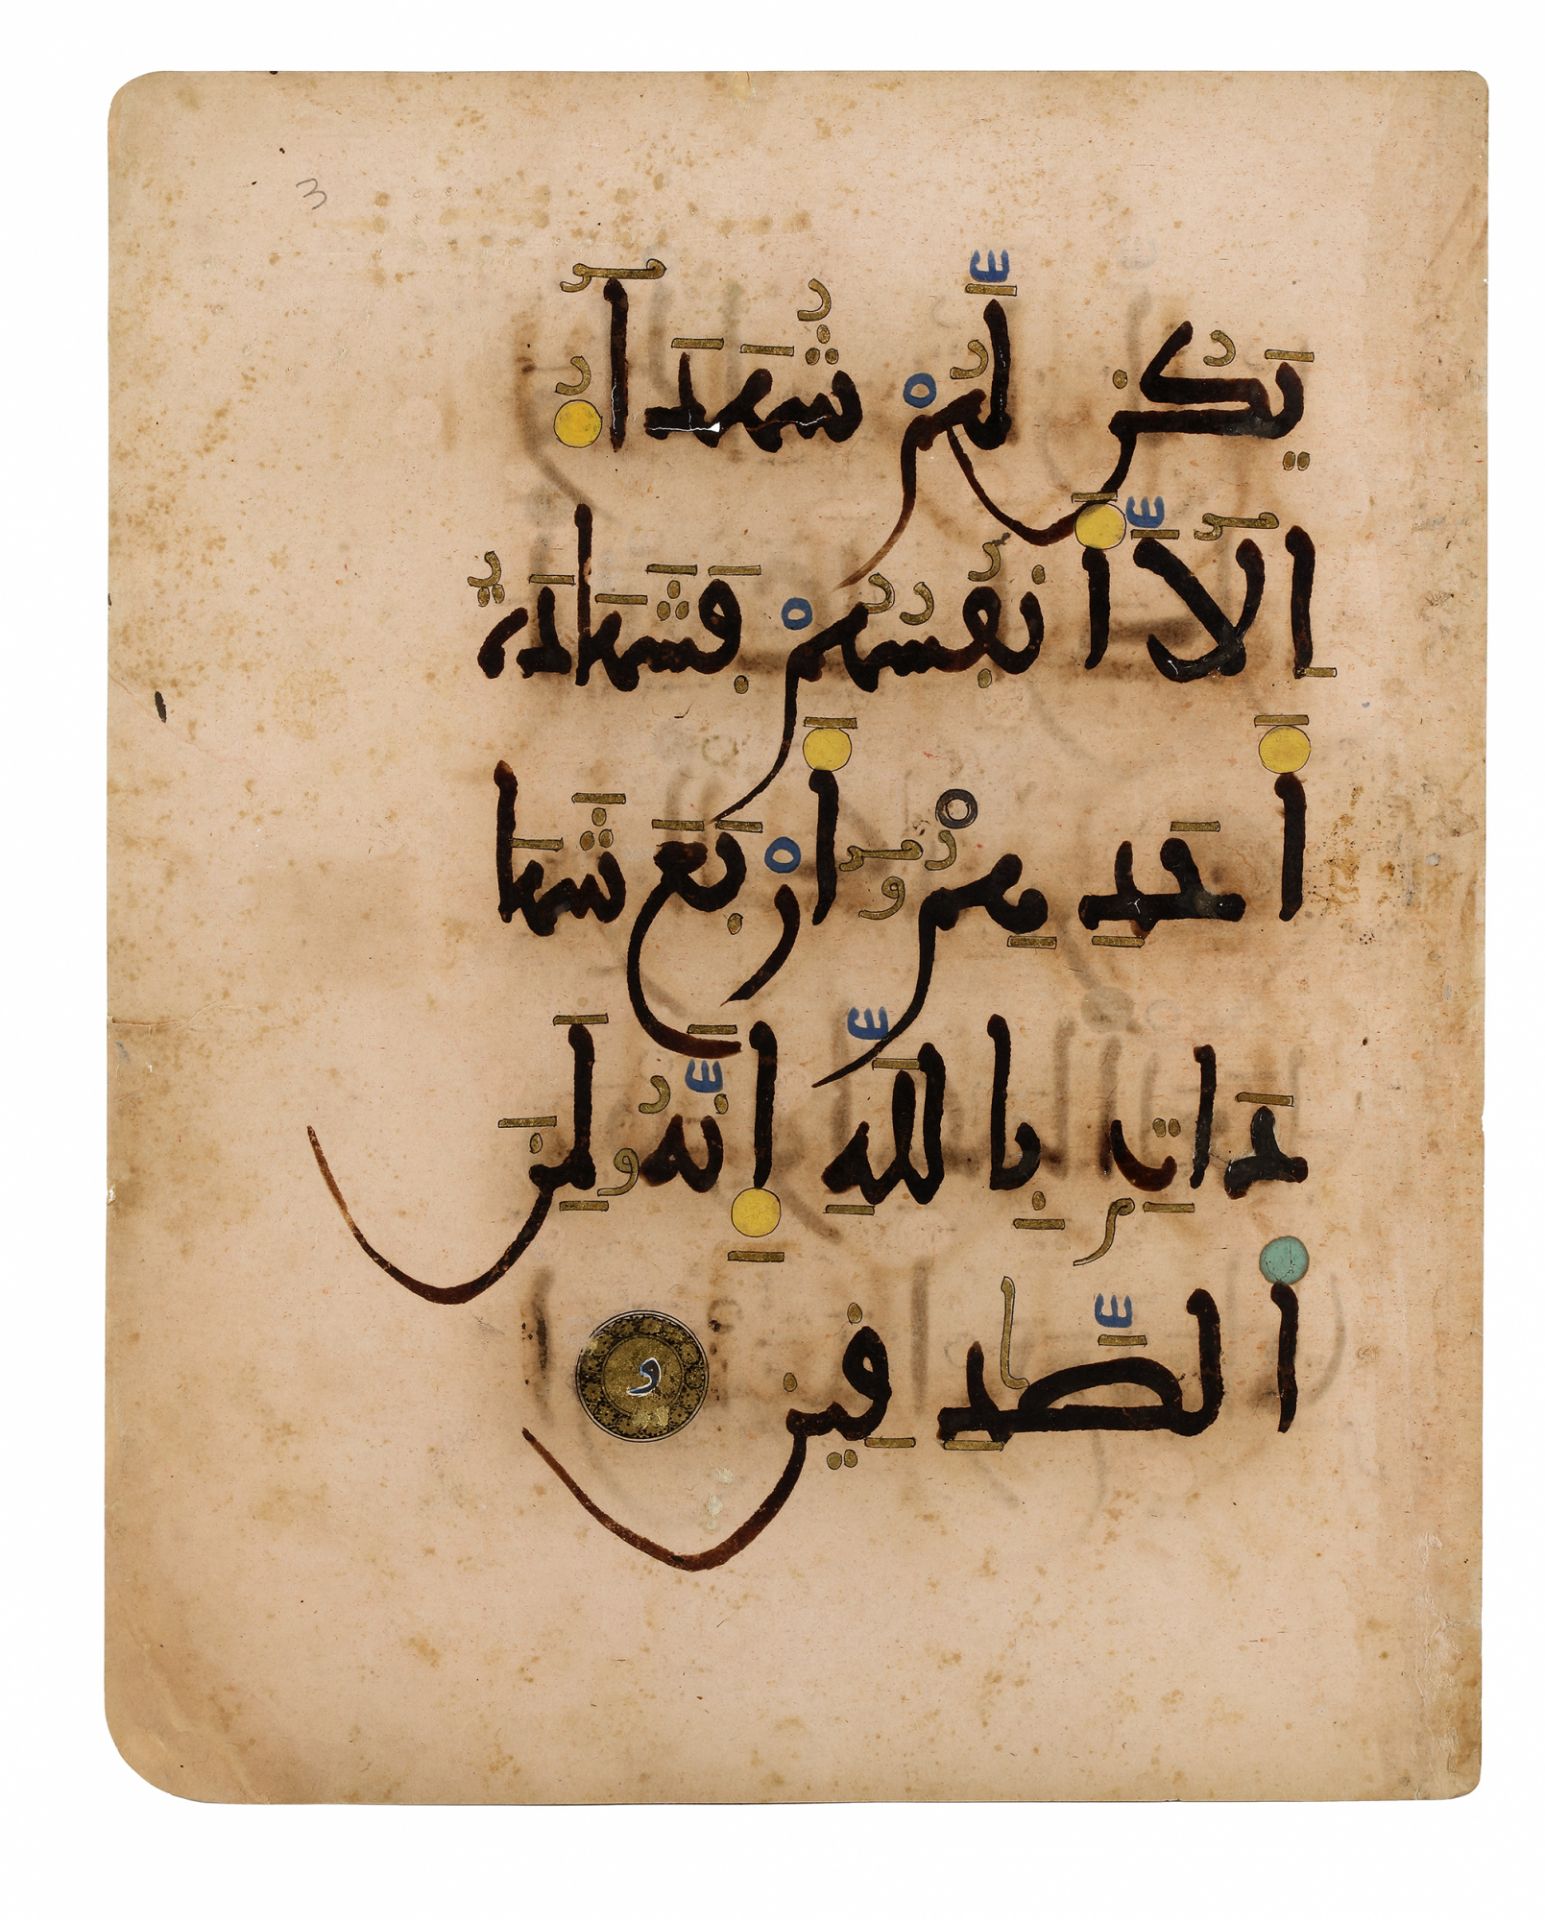 3
يَكُن لَّهُمْ شُهَدَآءُ
إِلَّآ أَنفُسُهُمْ فَشَهَادَةُ
أَحَدِهِمُۥٓ أَرْبَعَ شَهَا
دَاتٍۭ بِاللَّهِ إِنَّهُۥ لَمِنَ
ٱلصَّٰدِقِينَ و